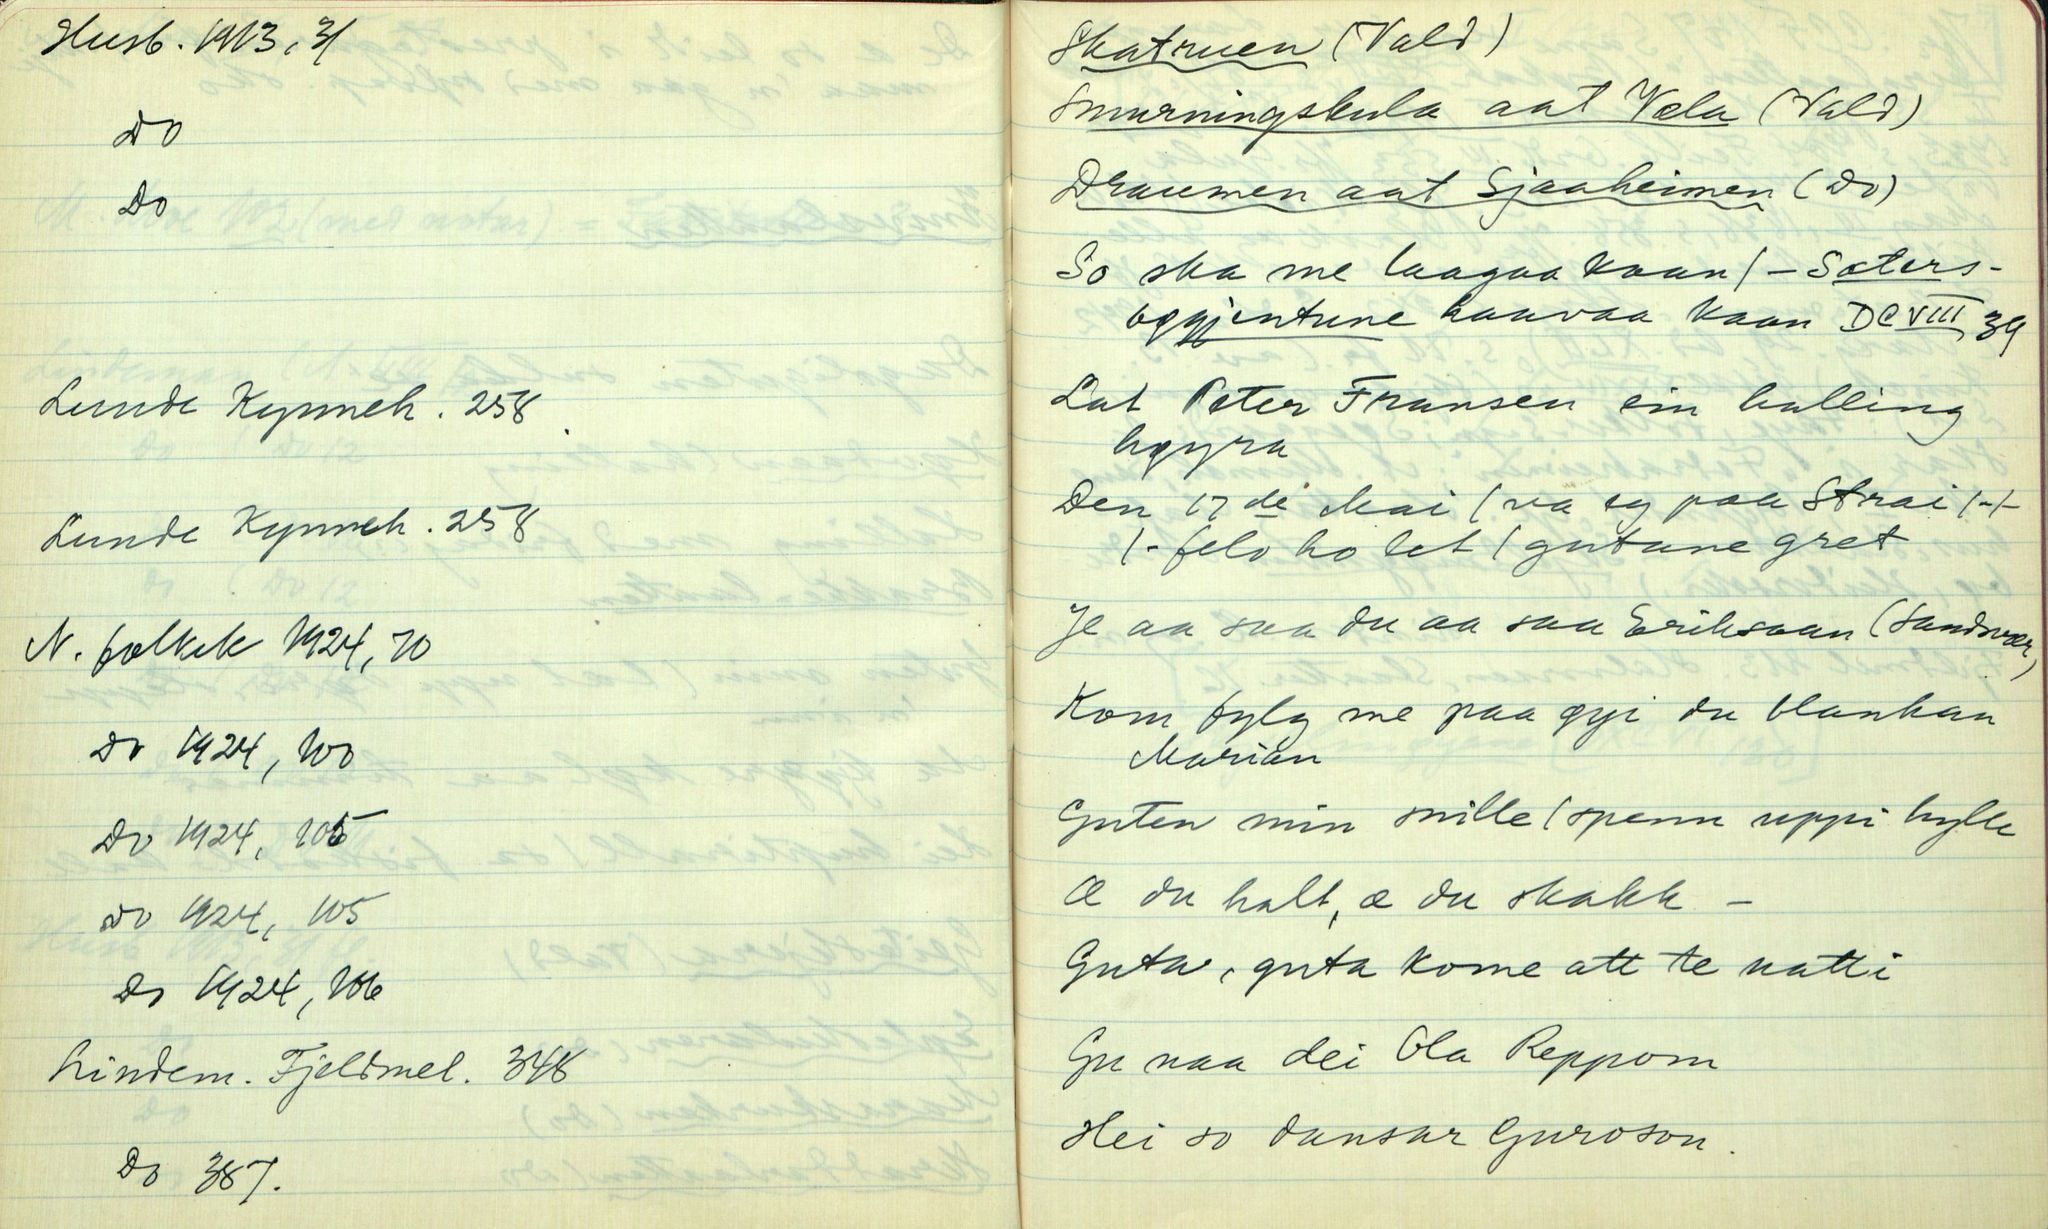 Husb. 1913, 31
Do
Do
Lunde Kynneh. 258
Lunde Kynneh. 258
N. folkek 1924, 70
Do 1924, 100
Do 1924, 105
Do 1924, 105
Do 1924, 106
Lindem. Fjeldmel. 348
Do 387.
Skatruen (Vald)
Smurningskula aat Vela (Vald)
Draumen aat Sjaaheimen (Do)
So ska me laagaa kaan / – Sæters-
bøgjentune haavaa kaan DC VIII 39
Lat Peter Fransen ein halling
høyra
Den 17de Mai / va eg paa Strai /-/-
/- felo ho let / gutane gret
Je aa saa du aa saa Eriksaan (Sandsvær)
Kom fylg me paa øyi du blankan
Marian
Guten min snille / spenn uppi hylle
Æ du halt, æ du skakk –
Guta, guta kome att te natti
Gu naa dei Ola Reppom
Hei so dansar Guroson.